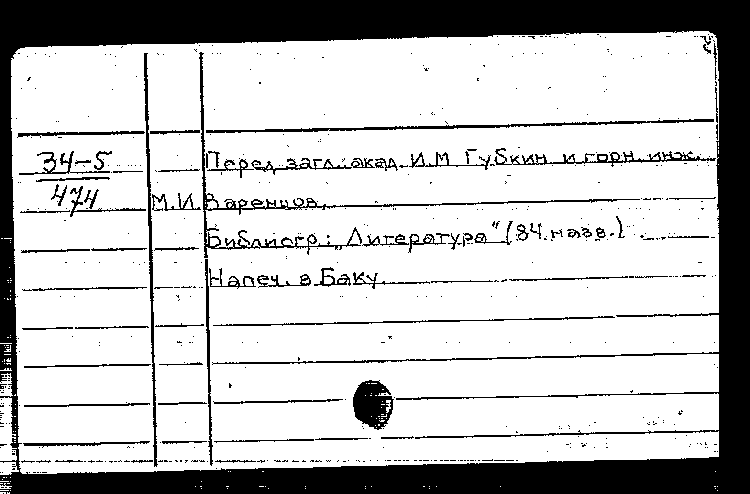 34-5
474
Перед загл.: акад. И.М Губкин и горн. инж.
М.И. Варенцов.
Библиогр.: „Литература" (84 назв.)
Напеч. в Баку.